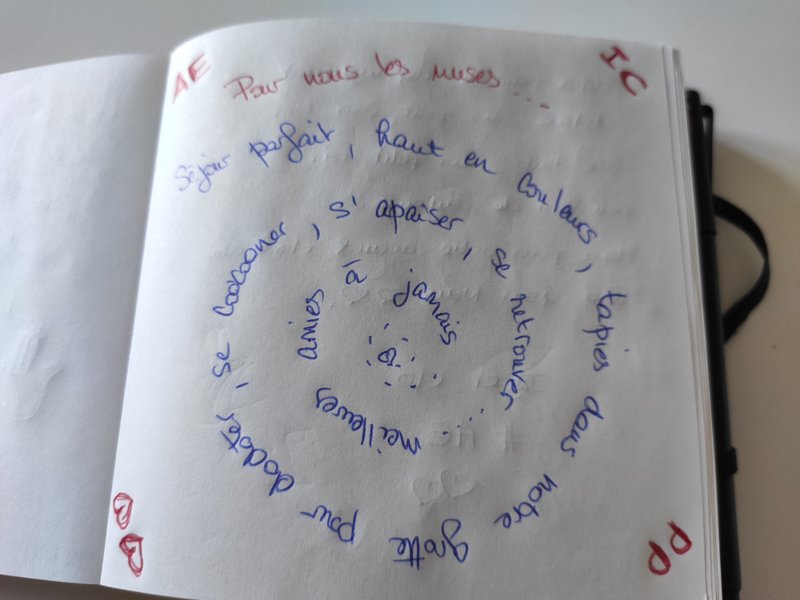 AE
IC
Pour nous les muses...
Séjour parfait, haut en couleurs, tapies dans notre grotte pour , se coocooner, s'apaiser, se retrouver .... meilleures amies à jamais
PP